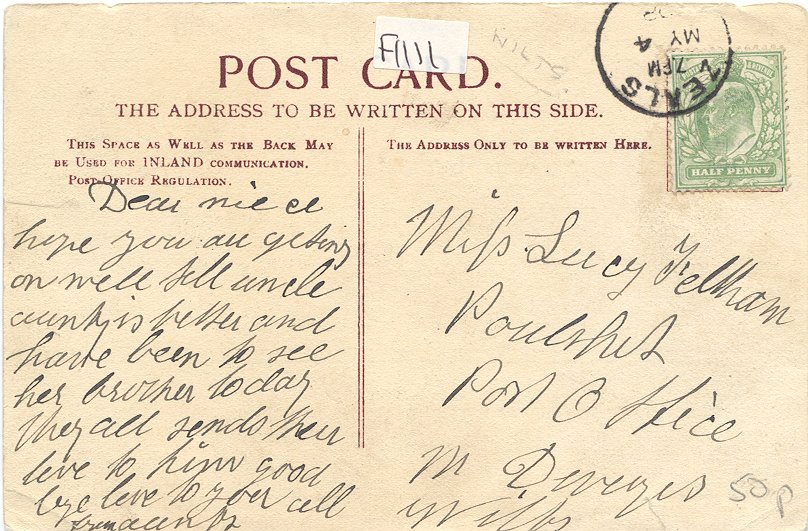 POST CARD.
F1111
WILTS
THE ADDRESS TO BE WRITTEN ON THIS SIDE.
ZEALS
7PM
MY 4
HALF PENNY
THIS SPACE AS WELL AS THE BACK MAY
BE USED FOR INLAND COMMUNICATION.
POST OFFICE REGULATION.
THE ADDRESS ONLY TO BE WRITTEN HERE.
Dear niece
hope you are geting
on well tell uncle
aunty is better and
have been to see
her brother today
they all sends their
love to him good
bye love to you all
from aunty
Miss Lucy Feltham
Poulshot
Post Office
Devizes
Wilts
50p